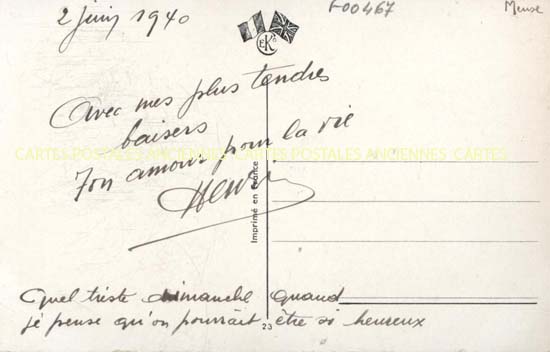 2 juin 1940
F00467
Meuse
EKC
Avec mes plus tendres
baisers
Ton amour pour la vie
Henri
CARTES POSTALES ANCIENNES CARTES POSTALES ANCIENNES CARTES
Imprimé en France
Quel triste dimanche quand
je pense qu'on pourrait être si heureux
23